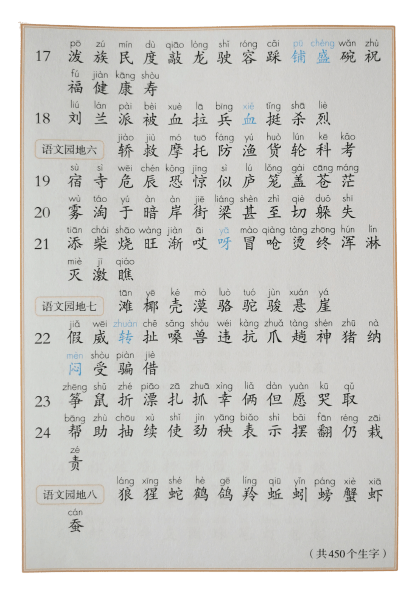 pō zú mín dù qiāo lóng shǐ róng cǎi pù chéng wǎn zhù
17 泼 族 民 度 敲 龙 驶 容 踩 铺 盛 碗 祝
fú jiàn kāng shòu
福 健 康 寿
liú lán pài bèi xuè lā bīng xiě tǐng shā liè
18 刘 兰 派 被 血 拉 兵 血 挺 杀 烈
jiào jiù mó tuō fáng yú huò lún kē kǎo
语文园地六 轿 救 摩 托 防 渔 货 轮 科 考
sù sì wēi chén kǒng jīng sì lú lǒng gài cāng máng
19 宿 寺 危 辰 恐 惊 似 庐 笼 盖 苍 茫
wù táo yú àn àn jiē liáng shèn zhì qiè duǒ shī
20 雾 淘 于 暗 岸 街 梁 甚 至 切 躲 失
tiān chái shāo wàng jiàn āi yā mào qiàng tàng zhōng hún lín
21 添 柴 烧 旺 渐 哎 呀 冒 呛 烫 终 浑 淋
miè jī qiáo
灭 激 瞧
tān yē ké mò luò tuó jùn xuán yá
语文园地七 滩 椰 壳 漠 骆 驼 骏 悬 崖
jiǎ wēi zhuàn chě sǎng shòu wéi kàng zhuǎ tàng shén zhū nà
22 假 威 转 扯 嗓 兽 违 抗 爪 趟 神 猪 纳
mèn shòu piàn jiè
闷 受 骗 借
zhēng shǔ zhé piāo zā zhuā xìng liǎ dàn yuàn kū qǔ
23 筝 鼠 折 漂 扎 抓 幸 俩 但 愿 哭 取
bāng zhù chōu xù shǐ jìn yāng biǎo shì bǎi fān réng zāi
24 帮 助 抽 续 使 劲 秧 表 示 摆 翻 仍 栽
zé
责
láng xīng shé hè gē líng qiū yǐn páng xiè xiā
语文园地八 狼 猩 蛇 鹤 鸽 羚 蚯 蚓 螃 蟹 虾
cán
蚕
（共450个生字）